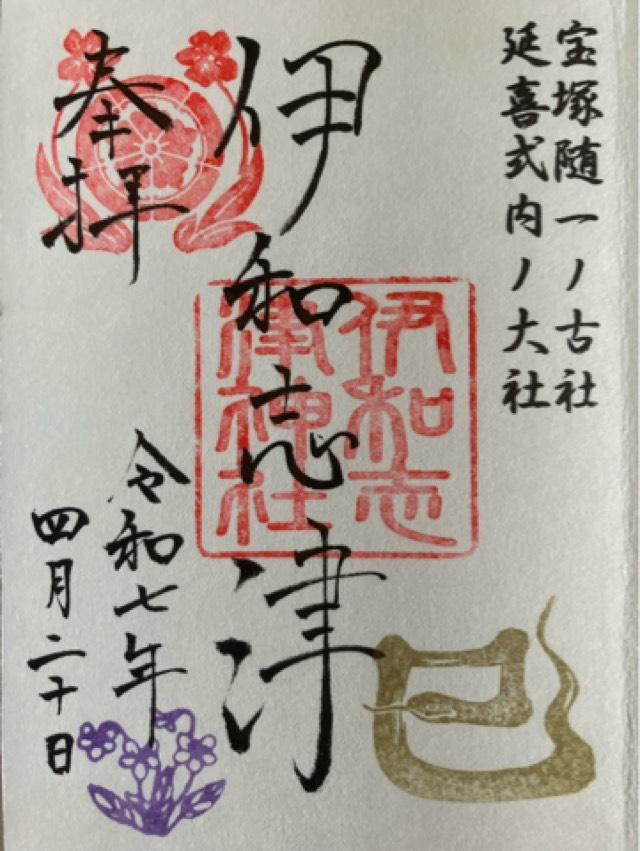 宝塚随一ノ古社
延喜式内ノ大社
伊和志津
伊和志
津神社
奉拝
令和七年
四月二十日
巳